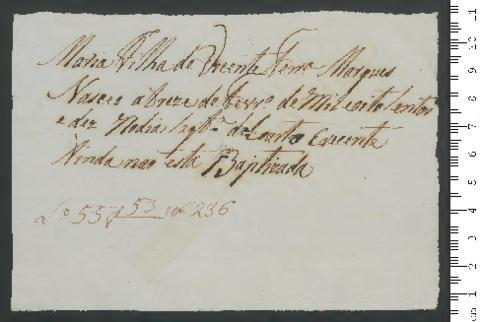 Maria Filha de Vicente Ferrª Marques
Nasceo a treze de Fevrº de Mil e oito Centos
e dez Nodia do Coarto Crecente
Ainda naõ está Baptizada
Lº 55 f 53 Nº 236